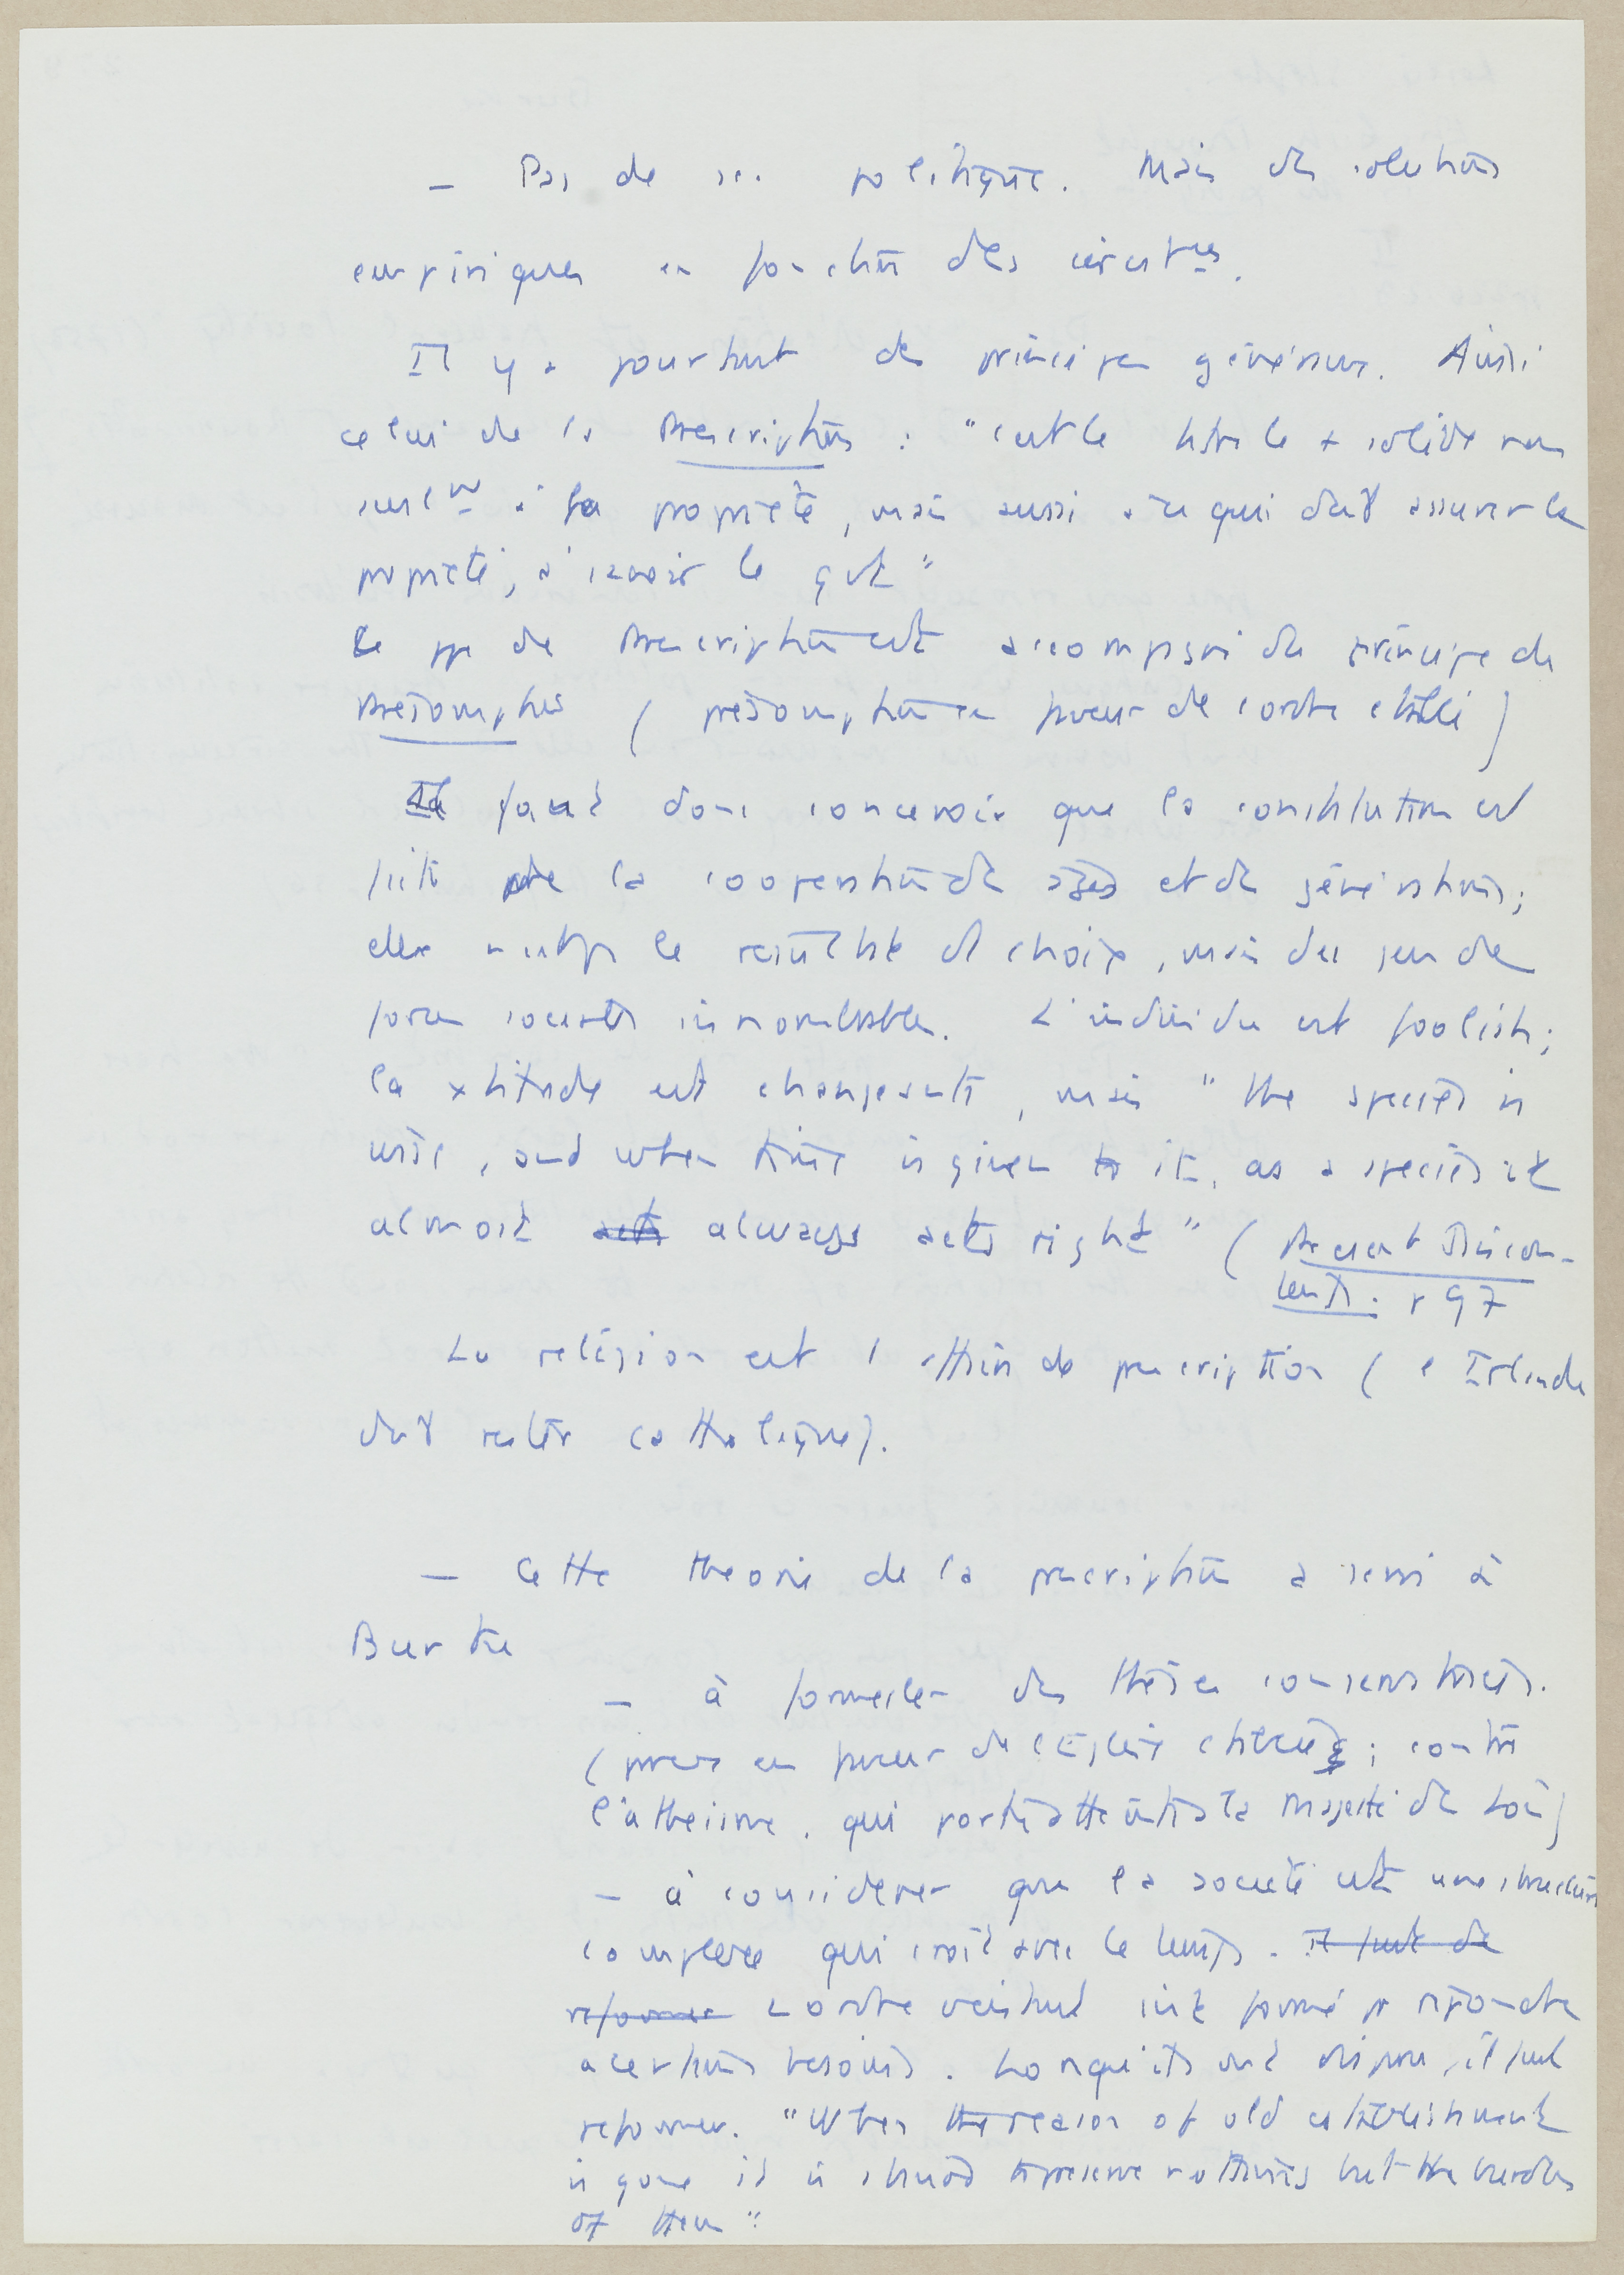 — Pas de sc. politique. Mais des solutions
empiriques en fonction des circst^ces.
Il y a pourtant des principes généraux. Ainsi
celui de la Prescription : "c'est le titre le + solide non
seul^nt à la propriété, mais aussi à ce qui doit assurer la
propriété, à savoir le gvt"
Le pp de Prescription est accompagné du principe de
Présomption (présomption en faveur de l'ordre établi)
Il faut donc concevoir que la constitution est
faite de la coopération des âges et des générations ;
elle n'est pas le résultat d'1 choix, mais du jeu de
forces sociales innombrables. L'individu est foolish ;
la xtitude est changeante, mais "the species is
wise, and when time is given to it, as a species it
almost acts always acts right" (Present Discon-
tents. p 97
La religion est 1 affaire de prescription (l'Irlande
doit rester catholique).
— Cette théorie de la prescription a servi à
Burke
— à formuler des thèses conservatrices.
( en faveur de l'Eglise établie ; contre
l'athéisme, qui porte atteinte à la Majesté des Lois)
— à considérer que la société est une structure
complexe qui croît avec le temps. Il faut de
reformer L'ordre existant s'est formé pr répondre
à certains besoins. Lorsqu'ils ont disparu, il faut
reformer. "When the reason of old establishment
is gone it is absurd to preserve nothing but the burden
of them"